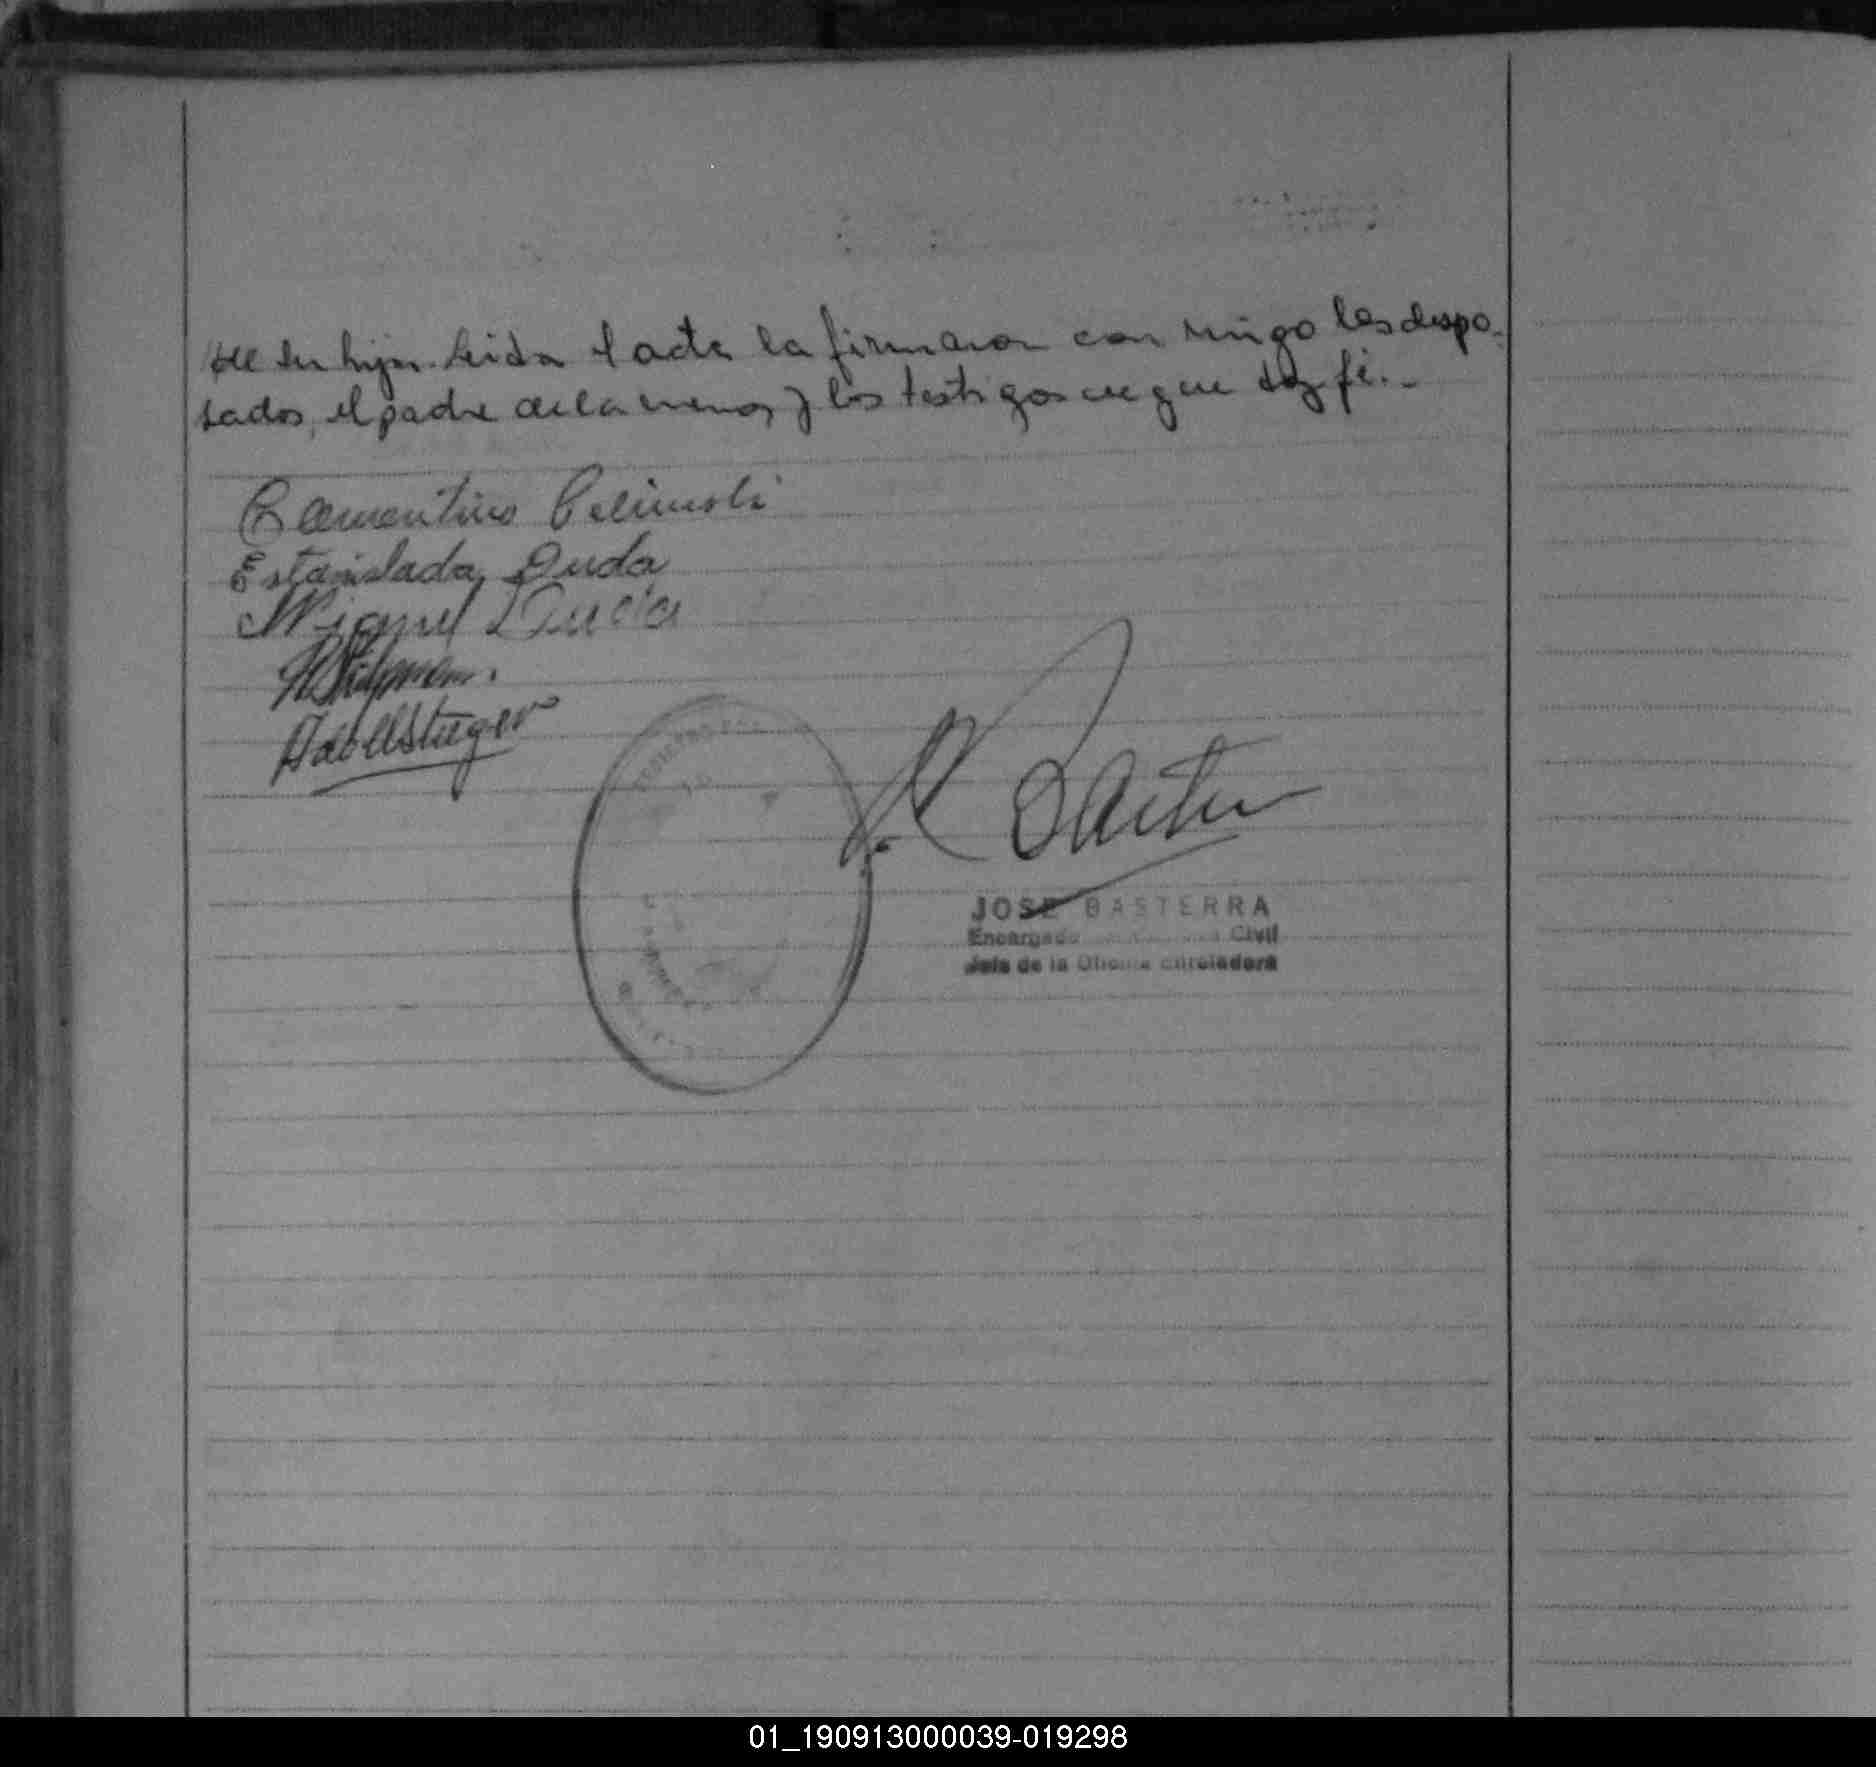 de su hija. Leida el acta la firmaron con migo los despo-
sados, el padre de la menor y los testigos de que doy fé.-
Clementino Celinski
Estanislada Duda
Miguel Duda
REGISTRO CIVIL
JOSE BASTERRA
Encargado Civil
Jefe de la Oficina Enroladora
01_190913000039-019298